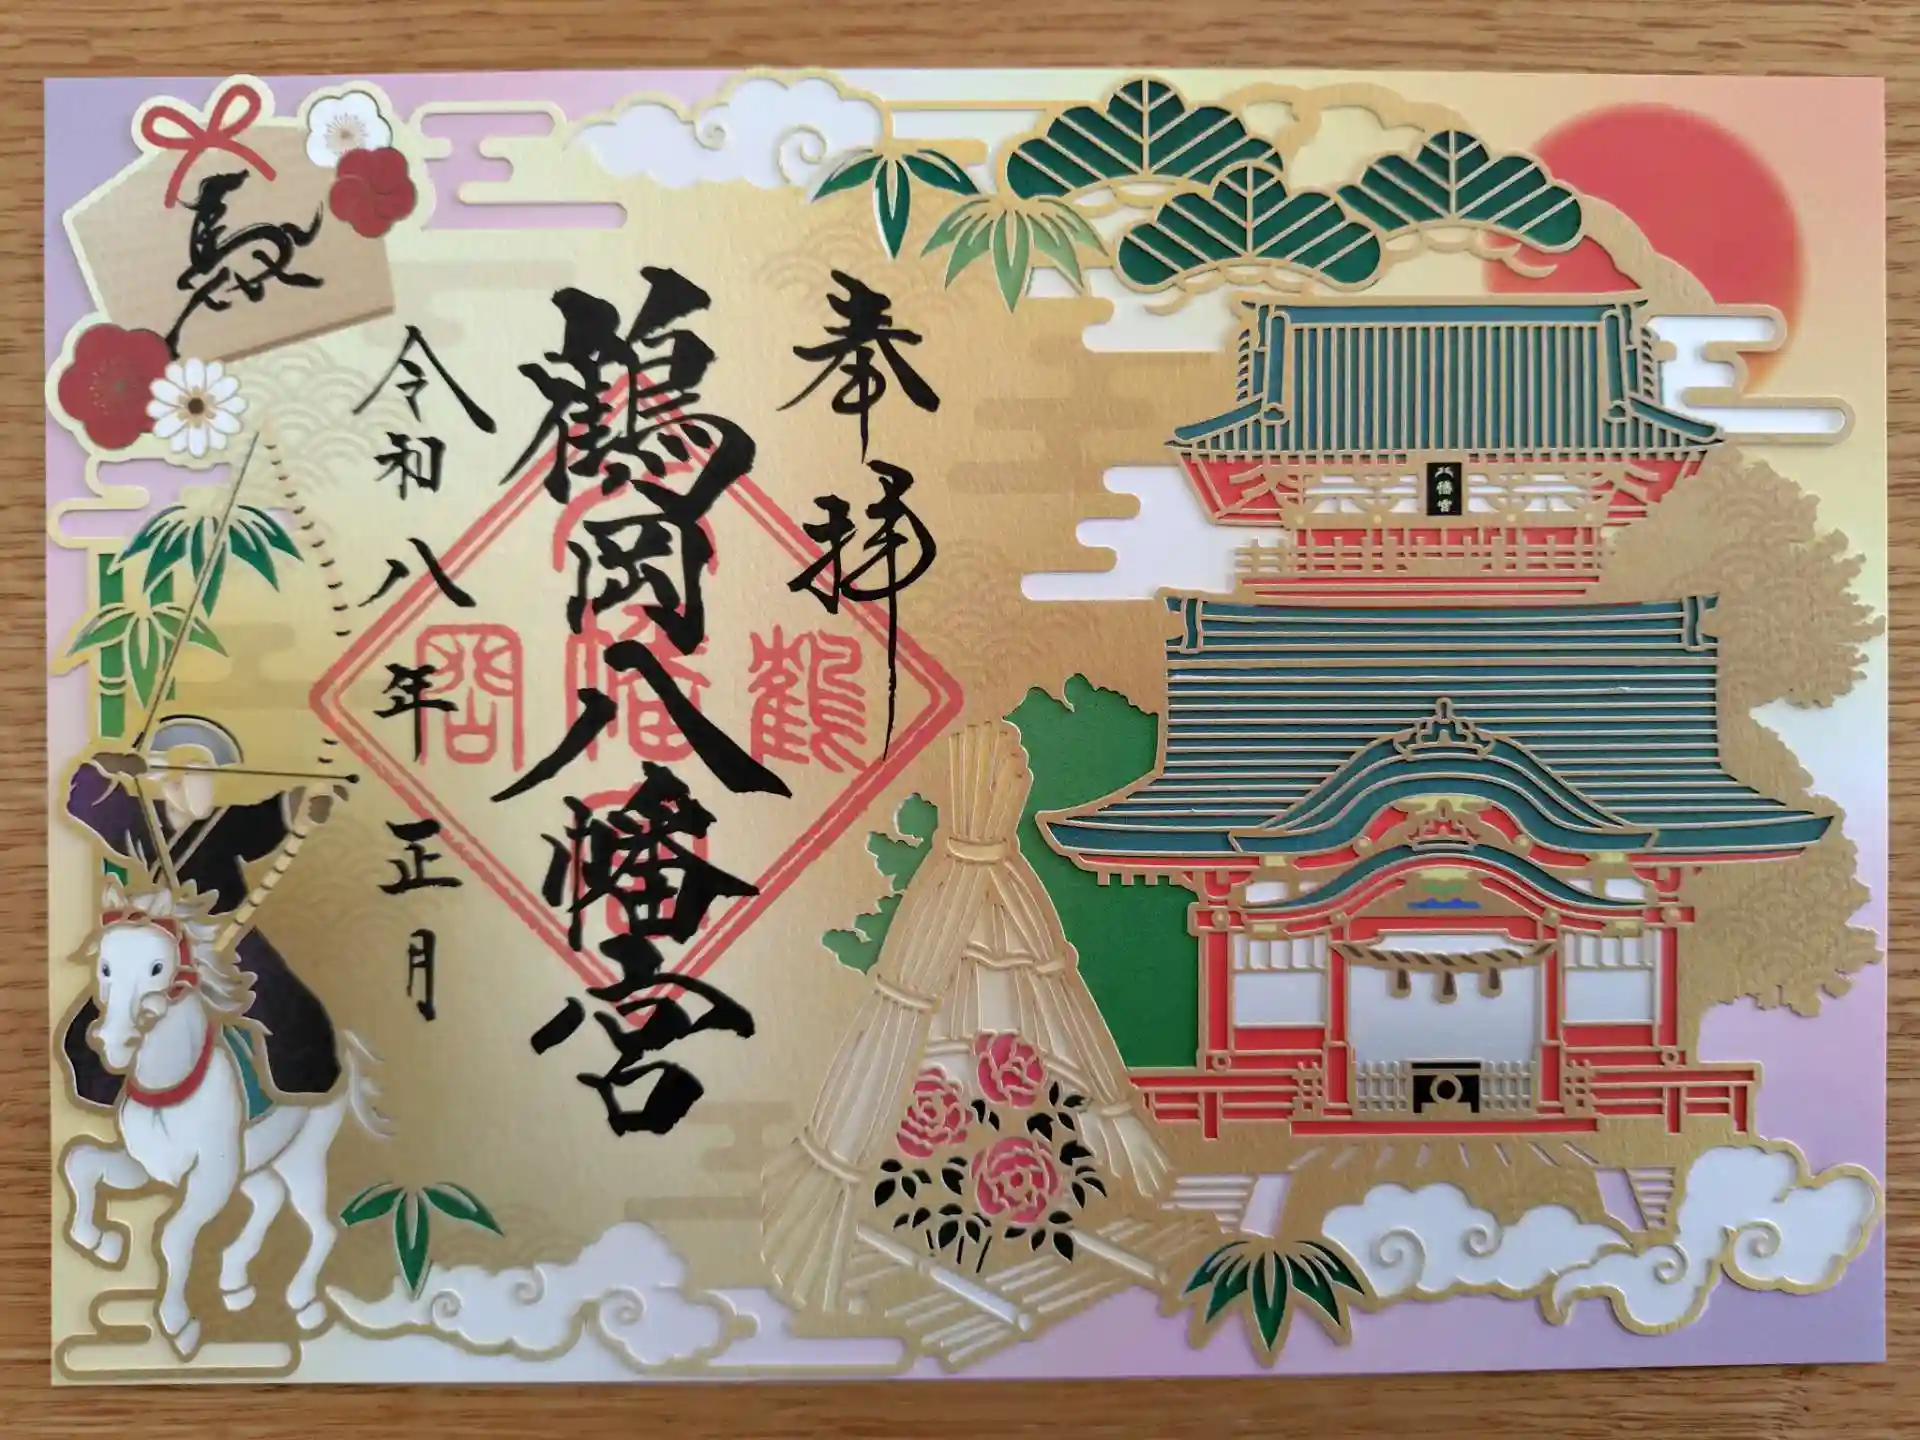 奉拝
鶴岡八幡宮
令和八年正月
馬
八幡宮
鶴
岡
幡